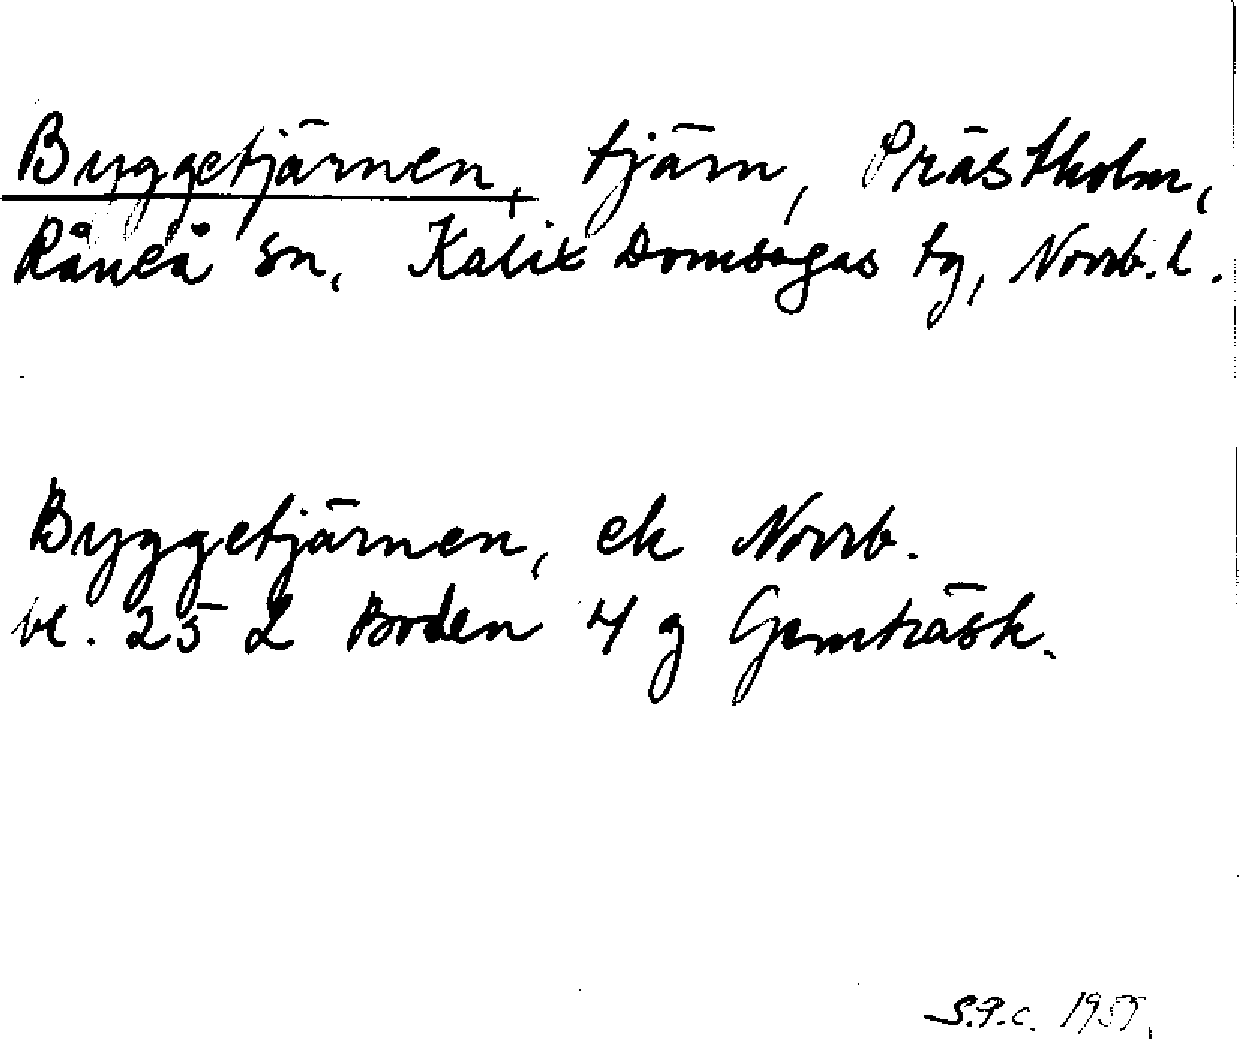 Byggetjärnen, tjärn, Prästholm,
Råneå sn, Kalix Domsagas tg, Norrb. l.
Byggetjärnen, ek Norrb.
bl. 25 L Boden 4 g Gemträsk.
S.P.C. 195